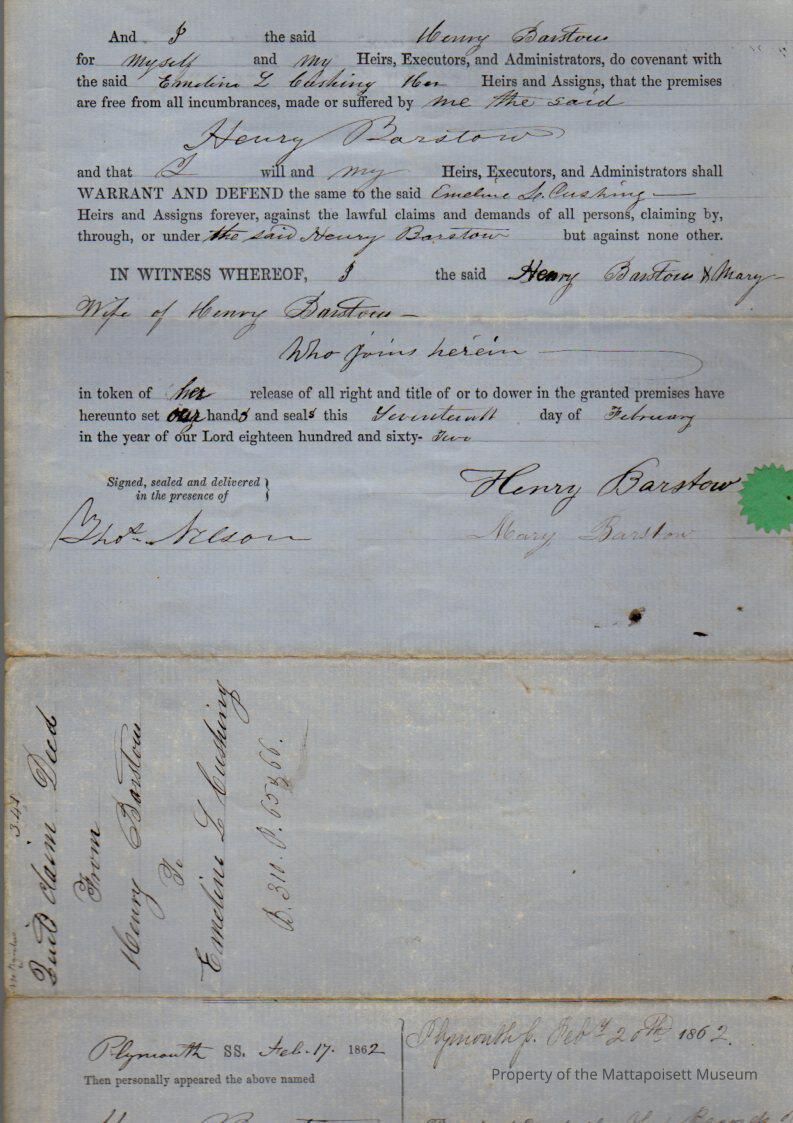 And I the said Henry Barstow
for myself and my Heirs, Executors, and Administrators, do covenant with
the said Emeline L Cushing Her Heirs and Assigns, that the premises
are free from all incumbrances, made or suffered by me the said
Henry Barstow
and that I will and my Heirs, Executors, and Administrators shall
WARRANT AND DEFEND the same to the said Emeline L. Cushing
Heirs and Assigns forever, against the lawful claims and demands of all persons, claiming by,
through, or under the said Henry Barstow but against none other.
IN WITNESS WHEREOF, I the said Henry Barstow & Mary
Wife of Henry Barstow
Who joins herein
in token of her release of all right and title of or to dower in the granted premises have
hereunto set our hands and seals this Seventeenth day of February
in the year of our Lord eighteen hundred and sixty-Two
Signed, sealed and delivered
in the presence of
Henry Barstow
Thos. Nelson
Mary Barstow
3.48
Quit claim Deed
From
Henry Barstow
To
Emeline L Cushing
B. 310. P. 65 & 66.
Plymouth SS. Feb. 17. 1862
Then personally appeared the above named
Plymouth ss. Feby 20th 1862.
Property of the Mattapoisett Museum